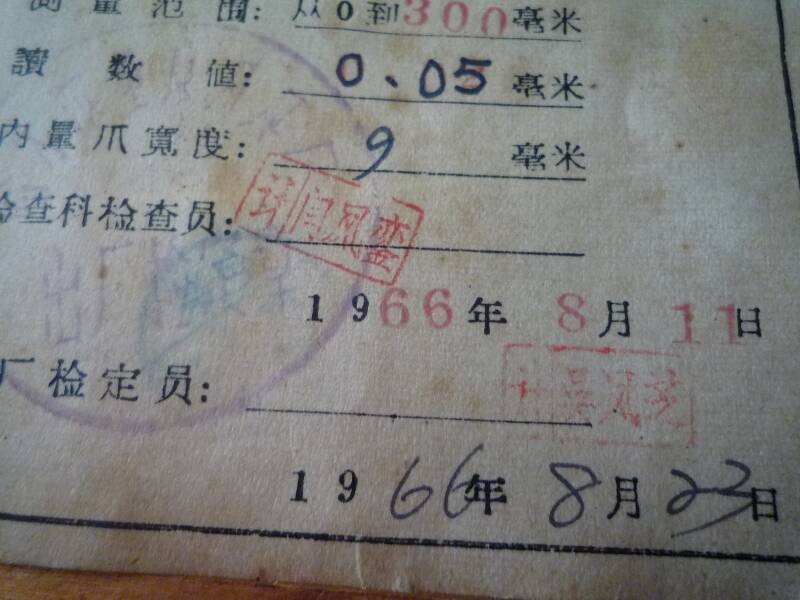 测量范围: 从0到300毫米
讀数值: 0.05毫米
内量爪寬度: 9 毫米
检查科检查员:
1966年 8月 11日
厂检定员:
1966年 8月 23日